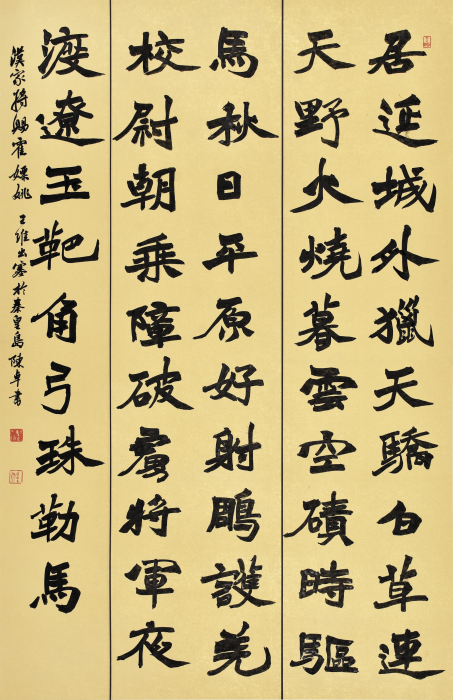 居延城外獵天驕白草連
天野火燒暮雲空磧時驅
馬秋日平原好射鵰護羌
校尉朝乘障破虜將軍夜
渡遼玉靶角弓珠勒馬
漢家將賜霍嫖姚 王維出塞於秦皇島陳卓書